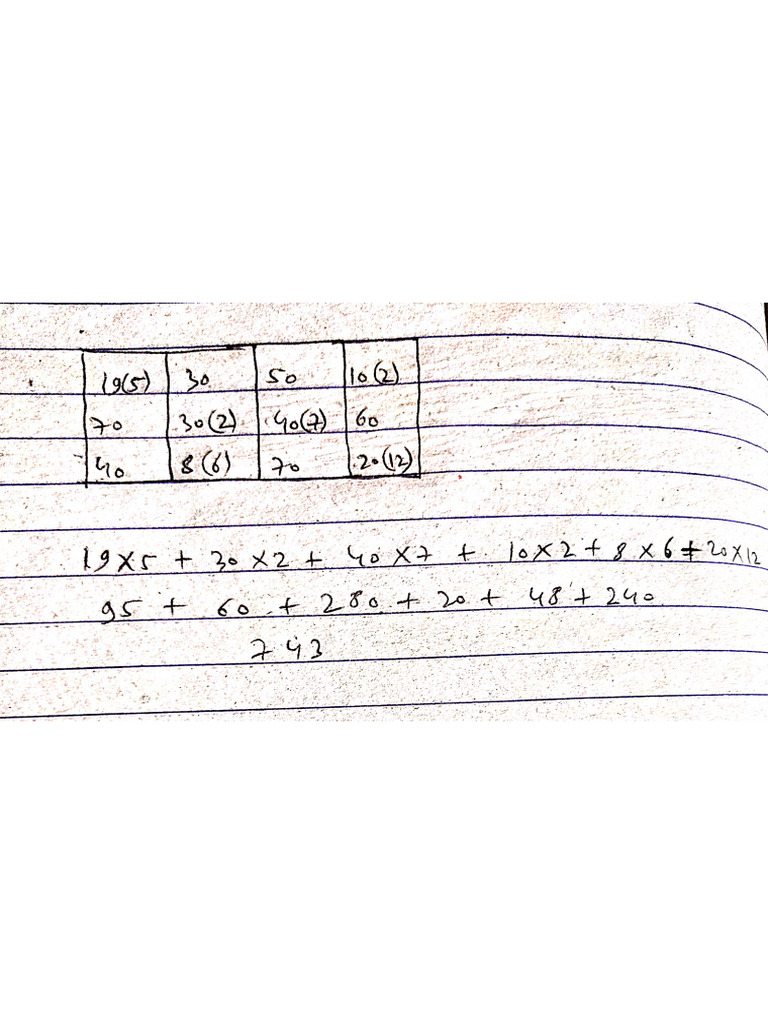 19(5) 30 50 10(2)
70 30(2) 40(7) 60
40 8(6) 70 20(12)
19×5 + 30×2 + 40×7 + 10×2 + 8×6 + 20×12
95 + 60 + 280 + 20 + 48 + 240
743